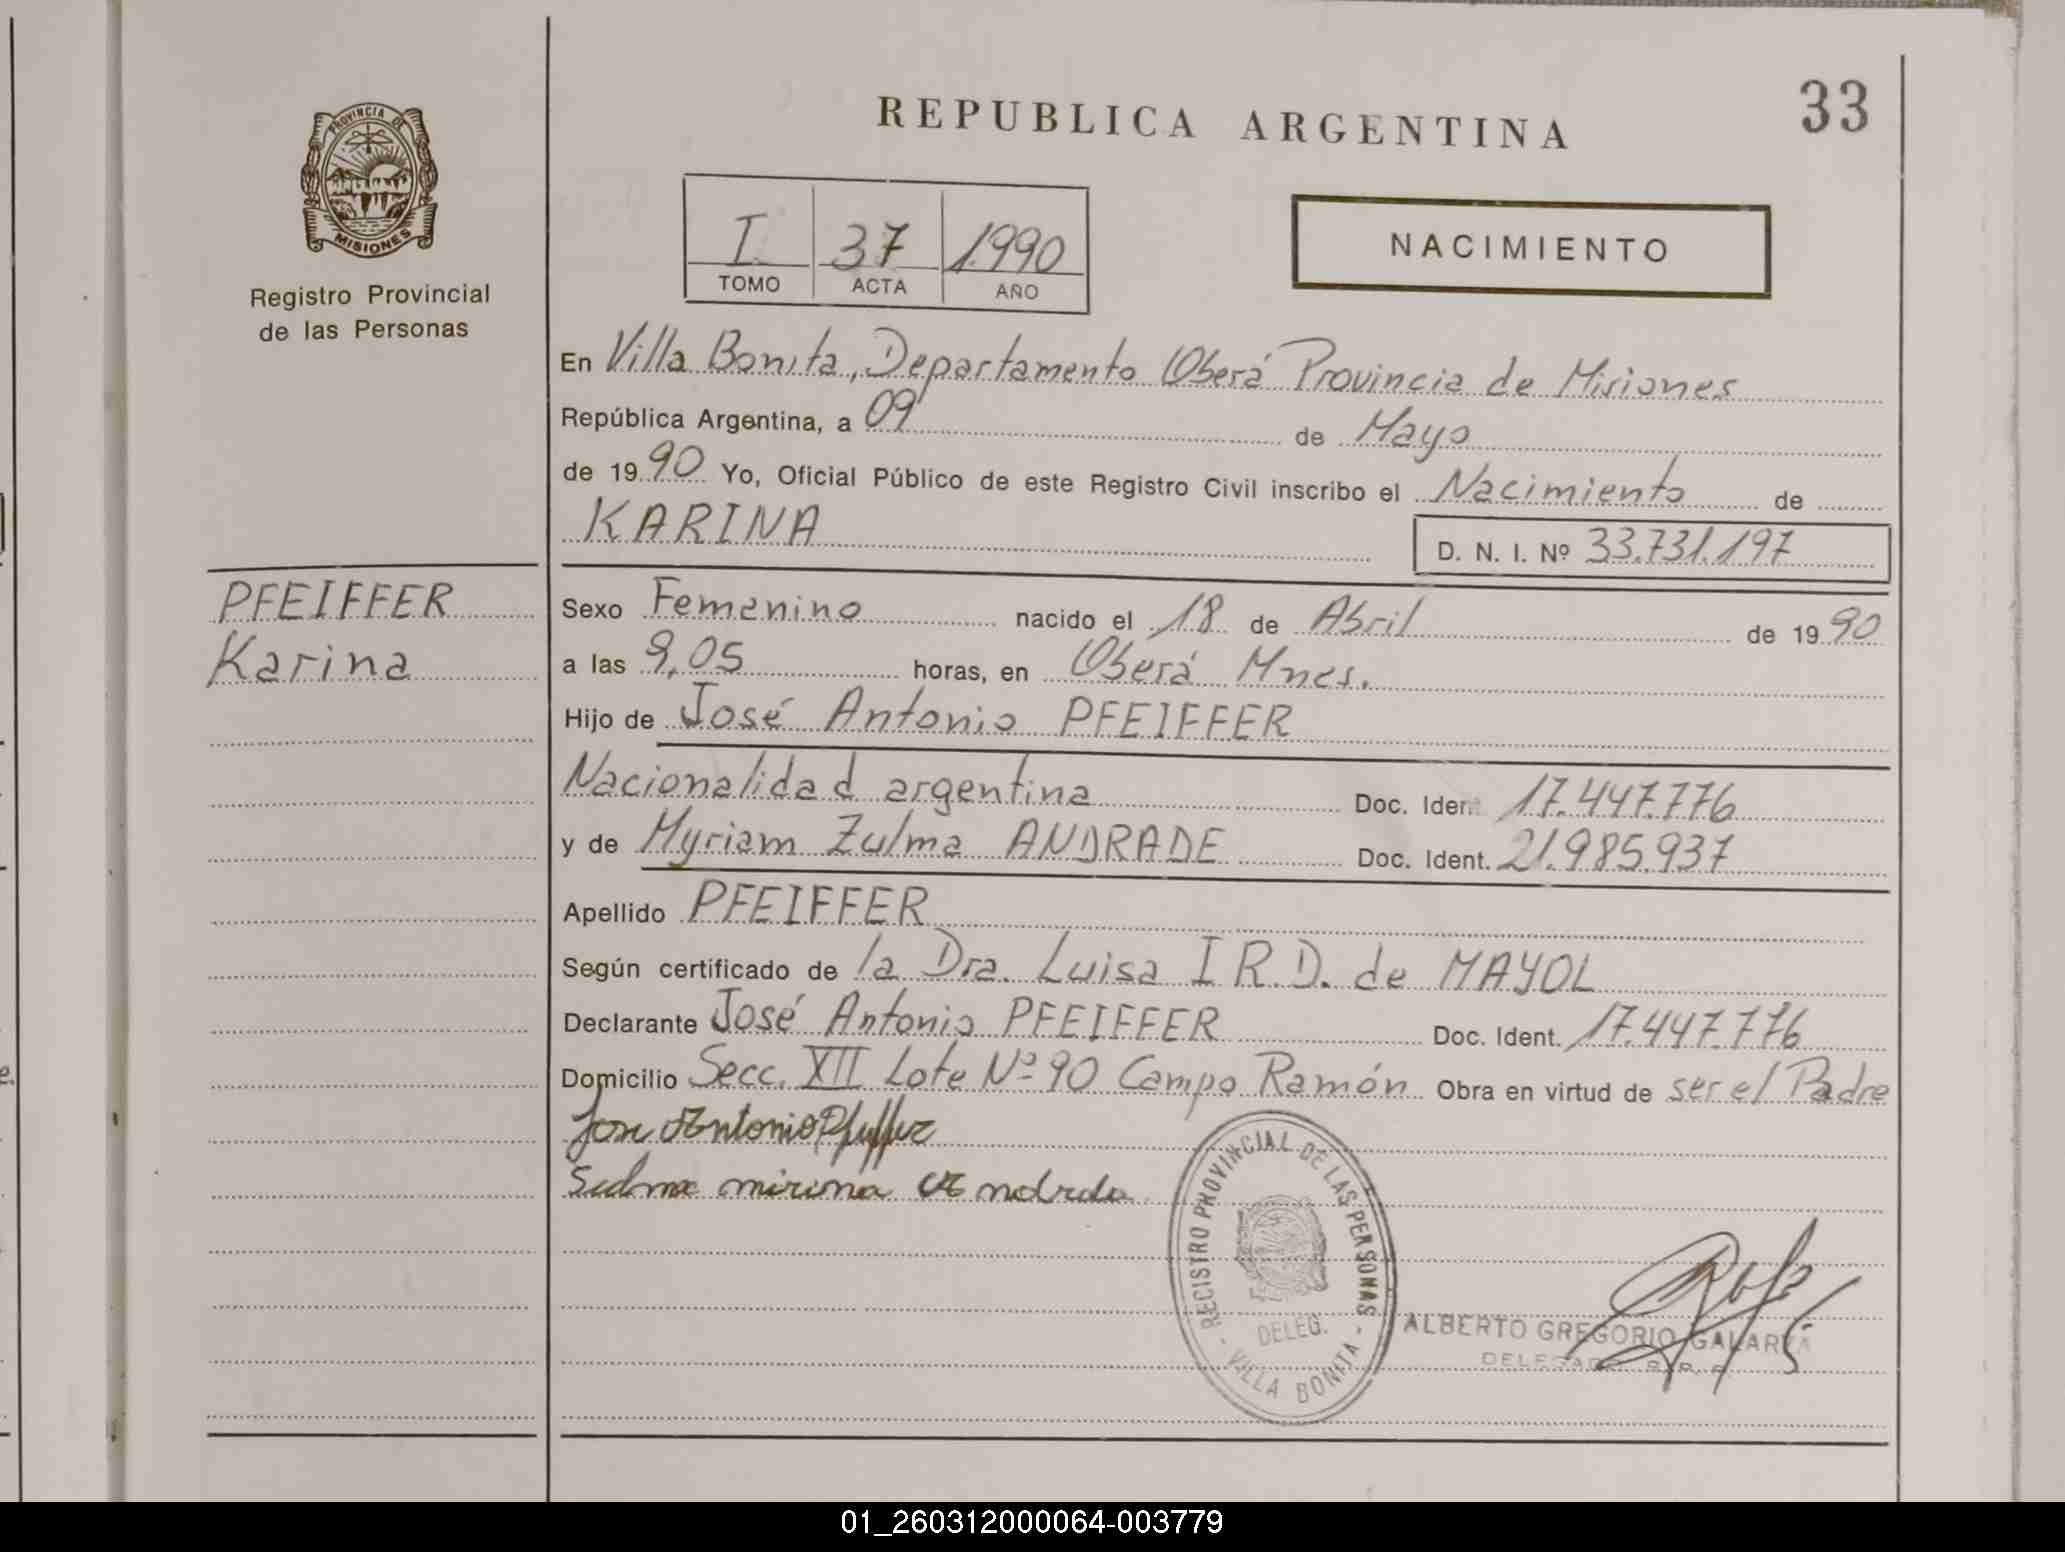 PROVINCIA DE
MISIONES
Registro Provincial
de las Personas
PFEIFFER
Karina
REPUBLICA ARGENTINA
33
I 37 1990
TOMO ACTA AÑO
NACIMIENTO
En Villa Bonita, Departamento Oberá Provincia de Misiones
República Argentina, a 09 de Mayo
de 1990 Yo, Oficial Público de este Registro Civil inscribo el Nacimiento de
KARINA D. N. I. Nº 33.731.197
Sexo Femenino nacido el 18 de Abril de 1990
a las 9,05 horas, en Oberá Mnes.
Hijo de José Antonio PFEIFFER
Nacionalidad argentina Doc. Ident. 17.447.776
y de Myriam Zulma ANDRADE Doc. Ident. 21.985.937
Apellido PFEIFFER
Según certificado de la Dra. Luisa I R.D. de MAYOL
Declarante José Antonio PFEIFFER Doc. Ident. 17.447.776
Domicilio Secc. XII Lote Nº 90 Campo Ramón Obra en virtud de ser el Padre
Jose Antonio Pfeiffer
REGISTRO PROVINCIAL DE LAS PERSONAS
DELEG.
- VILLA BONITA -
ALBERTO GREGORIO GALARZA
01_260312000064-003779